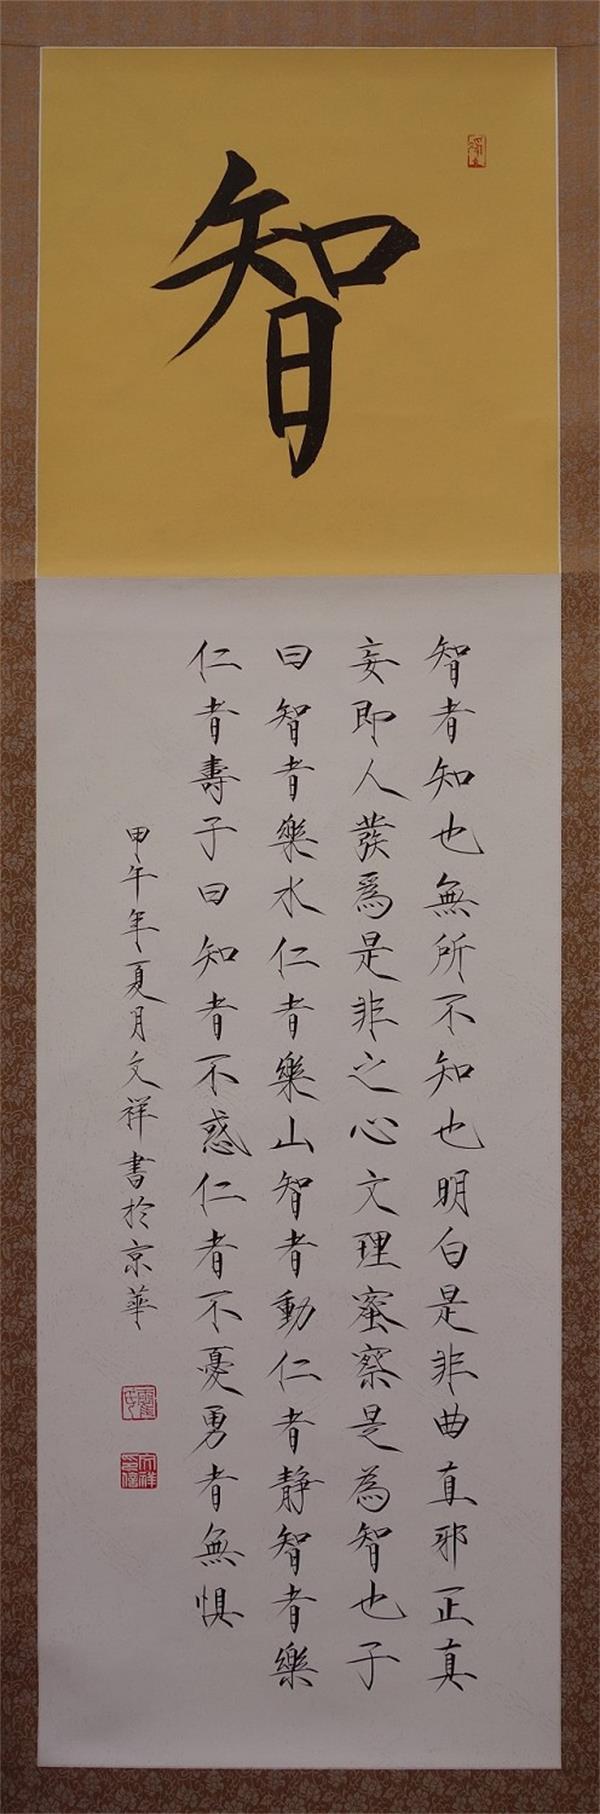 智
智者知也無所不知也明白是非曲直邪正真
妄即人發爲是非之心文理蜜察是為智也子
曰智者樂水仁者樂山智者動仁者静智者樂
仁者壽子曰知者不惑仁者不憂勇者無惧
甲午年夏月文祥書於京華
文祥印信